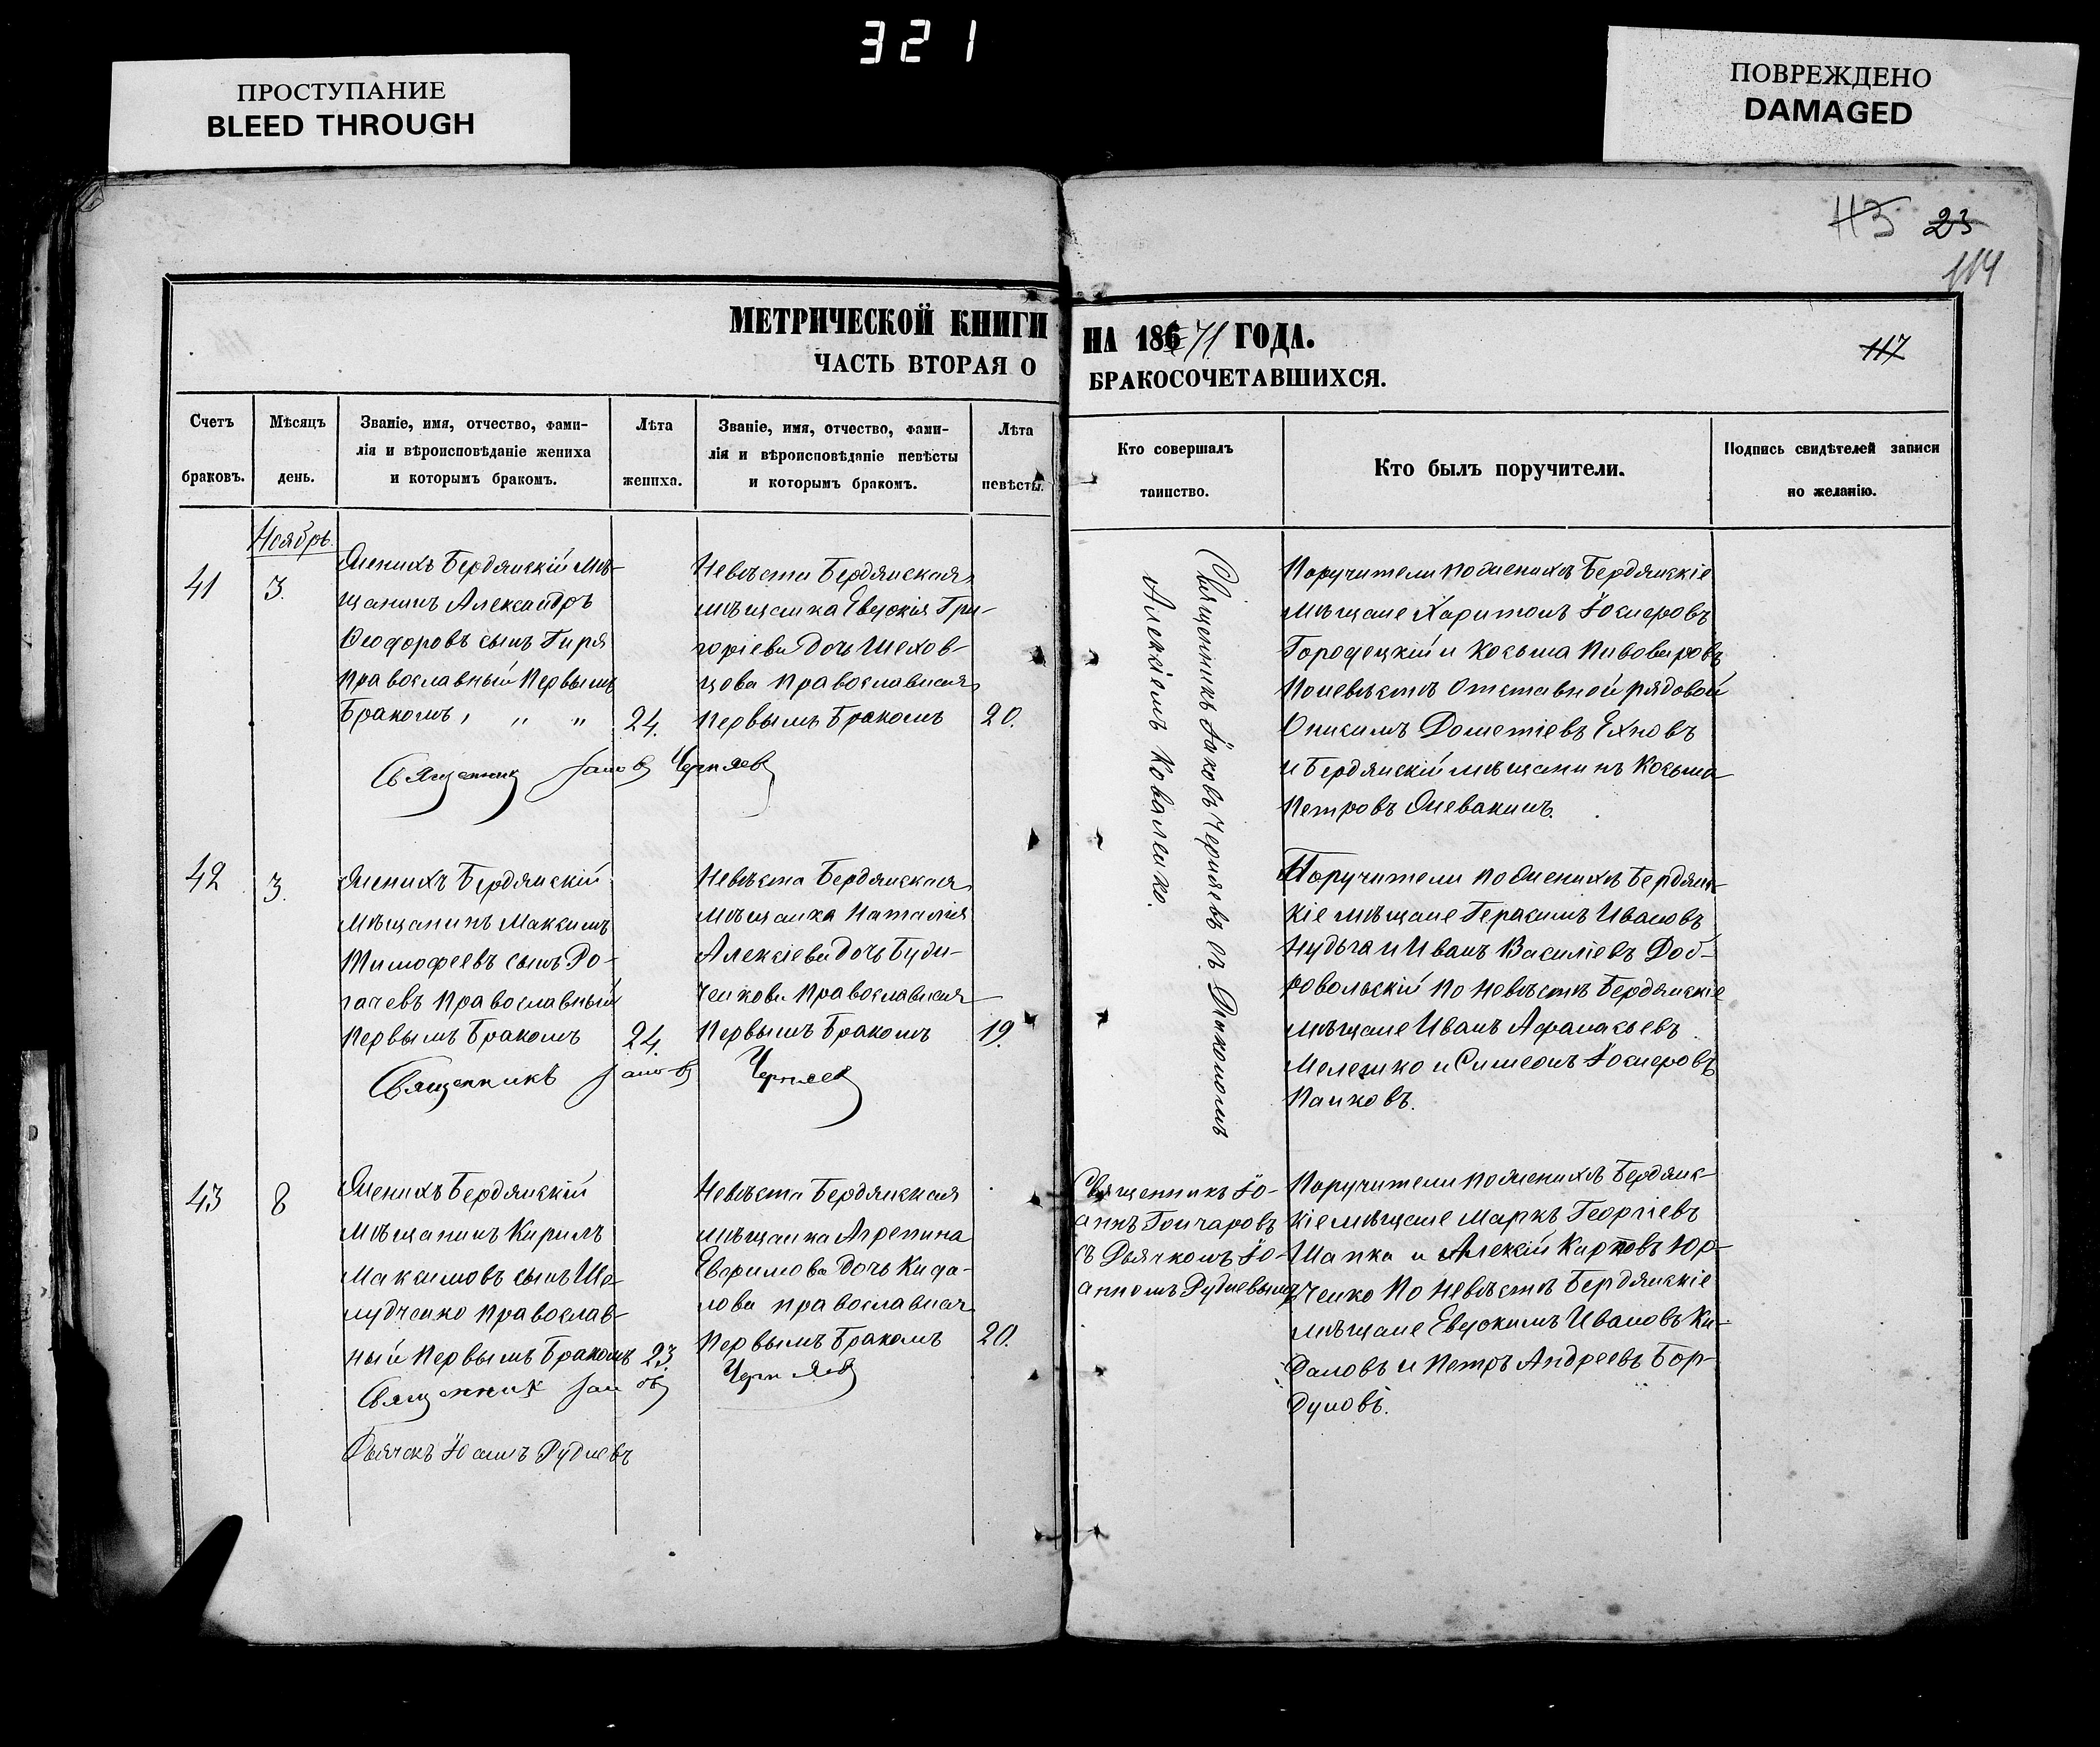 321
ПРОСТУПАНИЕ
BLEED THROUGH
ПОВРЕЖДЕНО
DAMAGED
113 23
114
117
МЕТРИЧЕСКОЙ КНИГИ НА 186 71 ГОДА.
ЧАСТЬ ВТОРАЯ О БРАКОСОЧЕТАВШИХСЯ.
Счетъ
браковъ.
Мѣсяцъ
день.
Званіе, имя, отчество, фами-
лія и вѣроисповѣданіе жениха
и которымъ бракомъ.
Лѣта
жениха.
Званіе, имя, отчество, фами-
лія и вѣроисповѣданіе невѣсты
и которымъ бракомъ.
Лѣта
невѣсты.
Кто совершалъ
таинство.
Кто былъ поручители.
Подпись свидѣтелей записи
по желанію.
Ноябрь.
41
3.
Женихъ Бердянскій мѣ-
щанинъ Александръ
Ѳеодоровъ сынъ Гиря
православный первымъ
бракомъ, " "
24.
Невѣста Бердянская
мѣщанка Евдокія Гри-
горіева дочь Шехов-
цова православная
первымъ бракомъ
20.
Священникъ Іаковъ Черняевъ
Священникъ Іаковъ Черняевъ съ Діакономъ
Алексіемъ Коваленко.
Поручители по женихѣ Бердянскіе
мѣщане Харитонъ Іосифовъ
Городецкій и Косьма Пивоваровъ
по невѣстѣ отставной рядовой
Онисимъ Дометіевъ Ехновъ
и Бердянскій мѣщанинъ Косьма
Петровъ Жевакинъ.
42
3.
Женихъ Бердянскій
мѣщанинъ Максимъ
Тимофеевъ сынъ Ро-
гачевъ православный
первымъ бракомъ
24.
Невѣста Бердянская
мѣщанка Наталія
Алексіева дочь Буди-
ченкова православная
первымъ бракомъ
19.
Священникъ Іаковъ Черняевъ
Поручители по женихѣ Бердянс-
кіе мѣщане Герасимъ Ивановъ
Нудьга и Иванъ Василіевъ Доб-
ровольскій по невѣстѣ Бердянскіе
мѣщане Иванъ Афанасьевъ
Мелешко и Симеонъ Іосифовъ
Панковъ.
43
8
Женихъ Бердянскій
мѣщанинъ Кирилъ
Максимовъ сынъ Ше-
лудченко православ-
ный первымъ бракомъ
23.
Невѣста Бердянская
мѣщанка Агрепина
Евфимова дочь Кида-
лова православная
первымъ бракомъ
20.
Священникъ Іаковъ Черняевъ
Дьячекъ Іоаннъ Рудневъ
Священникъ Іо-
аннъ Гончаровъ
съ Дьячкомъ Іо-
анномъ Рудневымъ
Поручители по женихѣ Бердянс-
кіе мѣщане Маркъ Георгіевъ
Шапка и Алексій Карповъ Юр-
ченко по невѣстѣ Бердянскіе
мѣщане Евдокимъ Ивановъ Ки-
даловъ и Петръ Андреевъ Бор-
дуновъ.